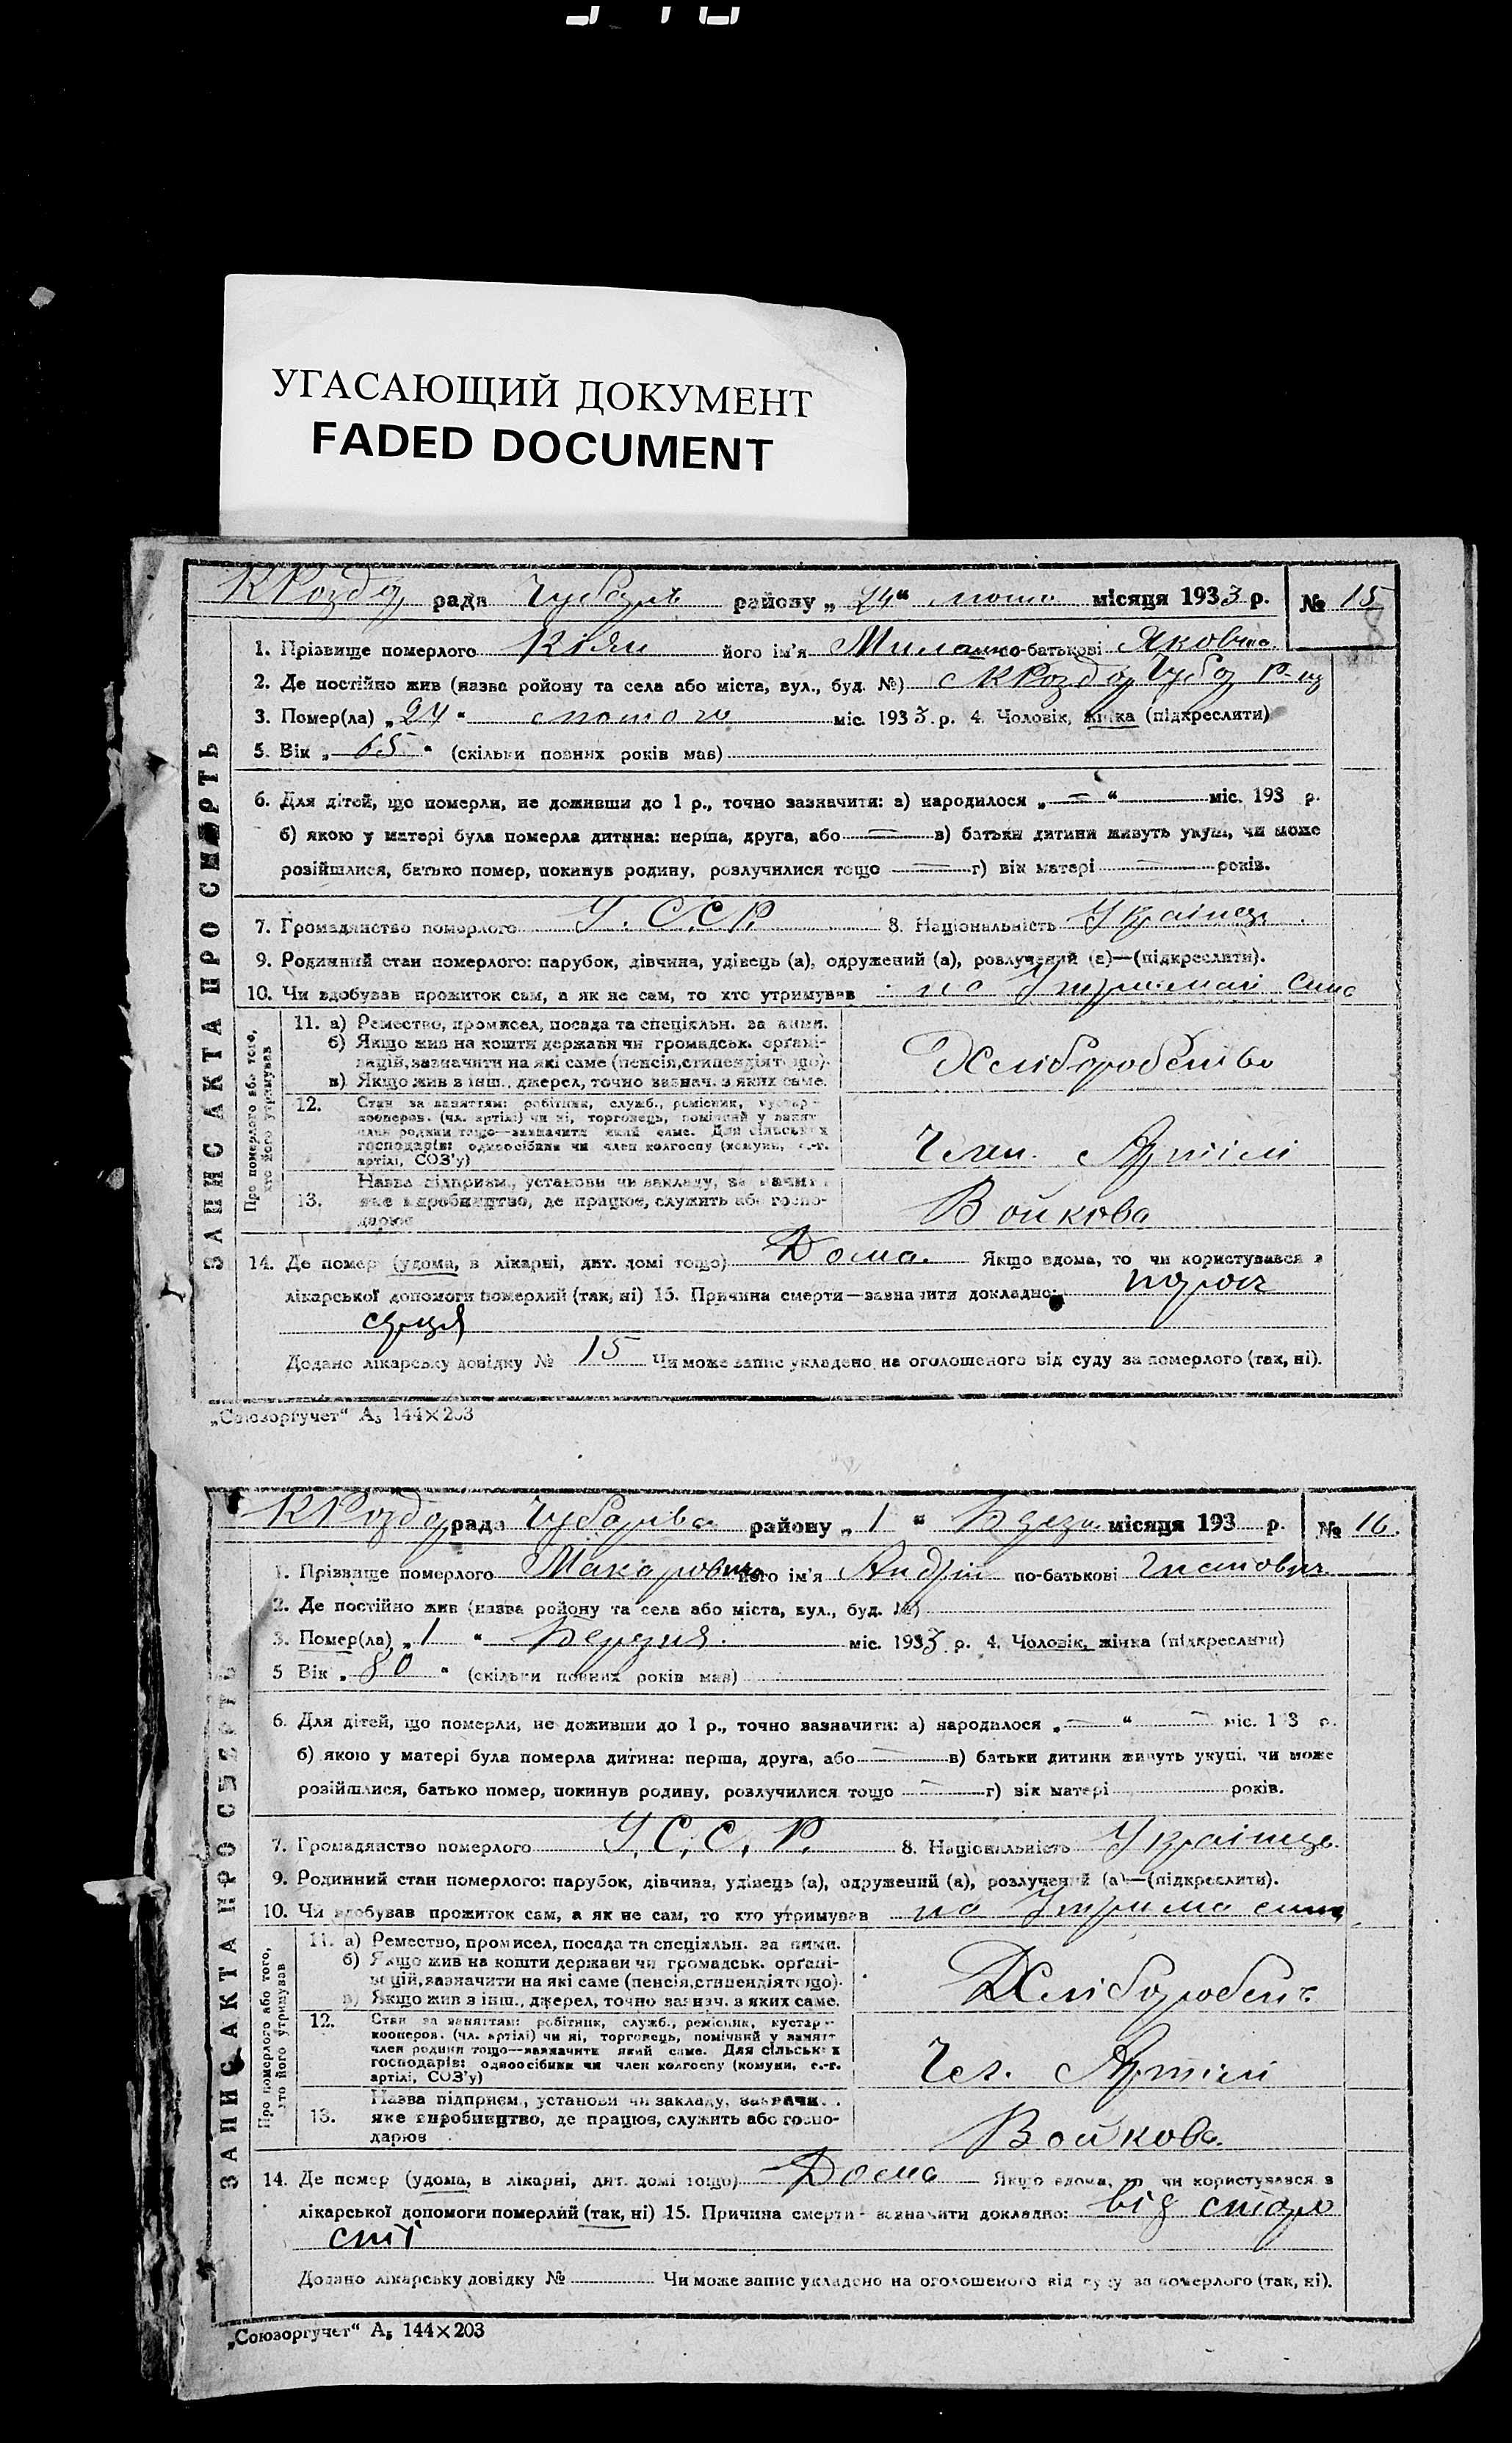 УГАСАЮЩИЙ ДОКУМЕНТ
FADED DOCUMENT
К Розд рада Чубар району „ 24 “ лютого місяця 1933 р. № 15
8
ЗАПИС АКТА ПРО СМЕРТЬ
1. Прізвище померлого Кіян його ім'я по-батькові Яковна
2. Де постійно жив (назва ройону та села або міста, вул., буд. №) с К Розд Чуб р-ну
3. Помер(ла) „ 24 “ лютого міс. 1933 р. 4. Чоловік, жінка (підкреслити)
5. Вік „ 65 “ (скільки повних років мав)
6. Для дітей, що померли, не доживши до 1 р., точно зазначити: а) народилося „ — “ міс. 193 р.
б) якою у матері була померла дитина: перша, друга, або — в) батьки дитини живуть укупі, чи може
розійшлися, батько помер, покинув родину, розлучилися тощо — г) вік матері — років.
7. Громадянство померлого У. С.С.Р. 8. Національність Українець
9. Родинний стан померлого: парубок, дівчина, удівець (а), одружений (а), розлучений (а)—(підкреслити).
10. Чи здобував прожиток сам, а як не сам, то хто утримував на Утриман сина
Про померлого або того, хто його утримував
11. а) Ремество, промисел, посада та спеціяльн. за ними.
б) Якщо жив на кошти держави чи громадськ. органі-
зацій, зазначити на які саме (пенсія, стипендія тощо).
в) Якщо жив з інш., джерел, точно зазнач. з яких саме.
Хліборобство
12. Стан за заняттям: робітник, служб., ремісник, кустар-
кооперов. (чл. артілі) чи ні, торговець, помічний у занят
член родини тощо—зазначити який саме. Для сільських
господарів: одноосібник чи член колгоспу (комуни, с.-г.
артілі, СОЗ'у)
Член. Артілі
13. Назва підприєм., установи чи закладу, зазначити
яке виробництво, де працює, служить або госпо-
дарює
Войкова
14. Де помер (удома, в лікарні, дит. домі тощо) Дома. Якщо вдома, то чи користувався з
лікарської допомоги померлий (так, ні) 15. Причина смерти—зазначити докладно: порок
серця
Додано лікарську довідку № 15 Чи може запис укладено на оголошеного від суду за померлого (так, ні).
„Союзоргучет“ А₅ 144×203
К Розд рада Чубарівс району „ 1 “ Берез місяця 193 р. № 16.
ЗАПИС АКТА ПРО СМЕРТЬ
1. Прізвище померлого його ім'я Андрій по-батькові
2. Де постійно жив (назва ройону та села або міста, вул., буд. №)
3. Помер(ла) „ 1 “ Березня міс. 1933 р. 4. Чоловік, жінка (підкреслити)
5 Вік „ 80 “ (скільки повних років мав)
6. Для дітей, що померли, не доживши до 1 р., точно зазначити: а) народилося „ — “ — міс. 193 р.
б) якою у матері була померла дитина: перша, друга, або — в) батьки дитини живуть укупі, чи може
розійшлися, батько помер, покинув родину, розлучилися тощо — г) вік матері років.
7. Громадянство померлого У. С. С. Р. 8. Національність Українець
9. Родинний стан померлого: парубок, дівчина, удівець (а), одружений (а), розлучений (а)—(підкреслити).
10. Чи здобував прожиток сам, а як не сам, то хто утримував на Утрима сина
Про померлого або того, хто його утримував
11. а) Ремество, промисел, посада та спеціяльн. за ними.
б) Якщо жив на кошти держави чи громадськ. органі-
зацій, зазначити на які саме (пенсія, стипендія тощо).
в) Якщо жив з інш., джерел, точно зазнач. з яких саме.
Хліборобст
12. Стан за заняттям: робітник, служб., ремісник, кустар-
кооперов. (чл. артілі) чи ні, торговець, помічний у занятт
член родини тощо—зазначити який саме. Для сільських
господарів: одноосібник чи член колгоспу (комуни, с.-г.
артілі, СОЗ'у)
Чл. Артілі
13. Назва підприєм., установи чи закладу, зазначи
яке виробництво, де працює, служить або госпо-
дарює
Войкова.
14. Де помер (удома, в лікарні, дит. домі тощо) Дома Якщо вдома, то чи користувався з
лікарської допомоги померлий (так, ні) 15. Причина смерти - зазначити докладно: від старо
сті
Додано лікарську довідку № Чи може запис укладено на оголошеного від суду за померлого (так, ні).
„Союзоргучет“ А₅ 144×203